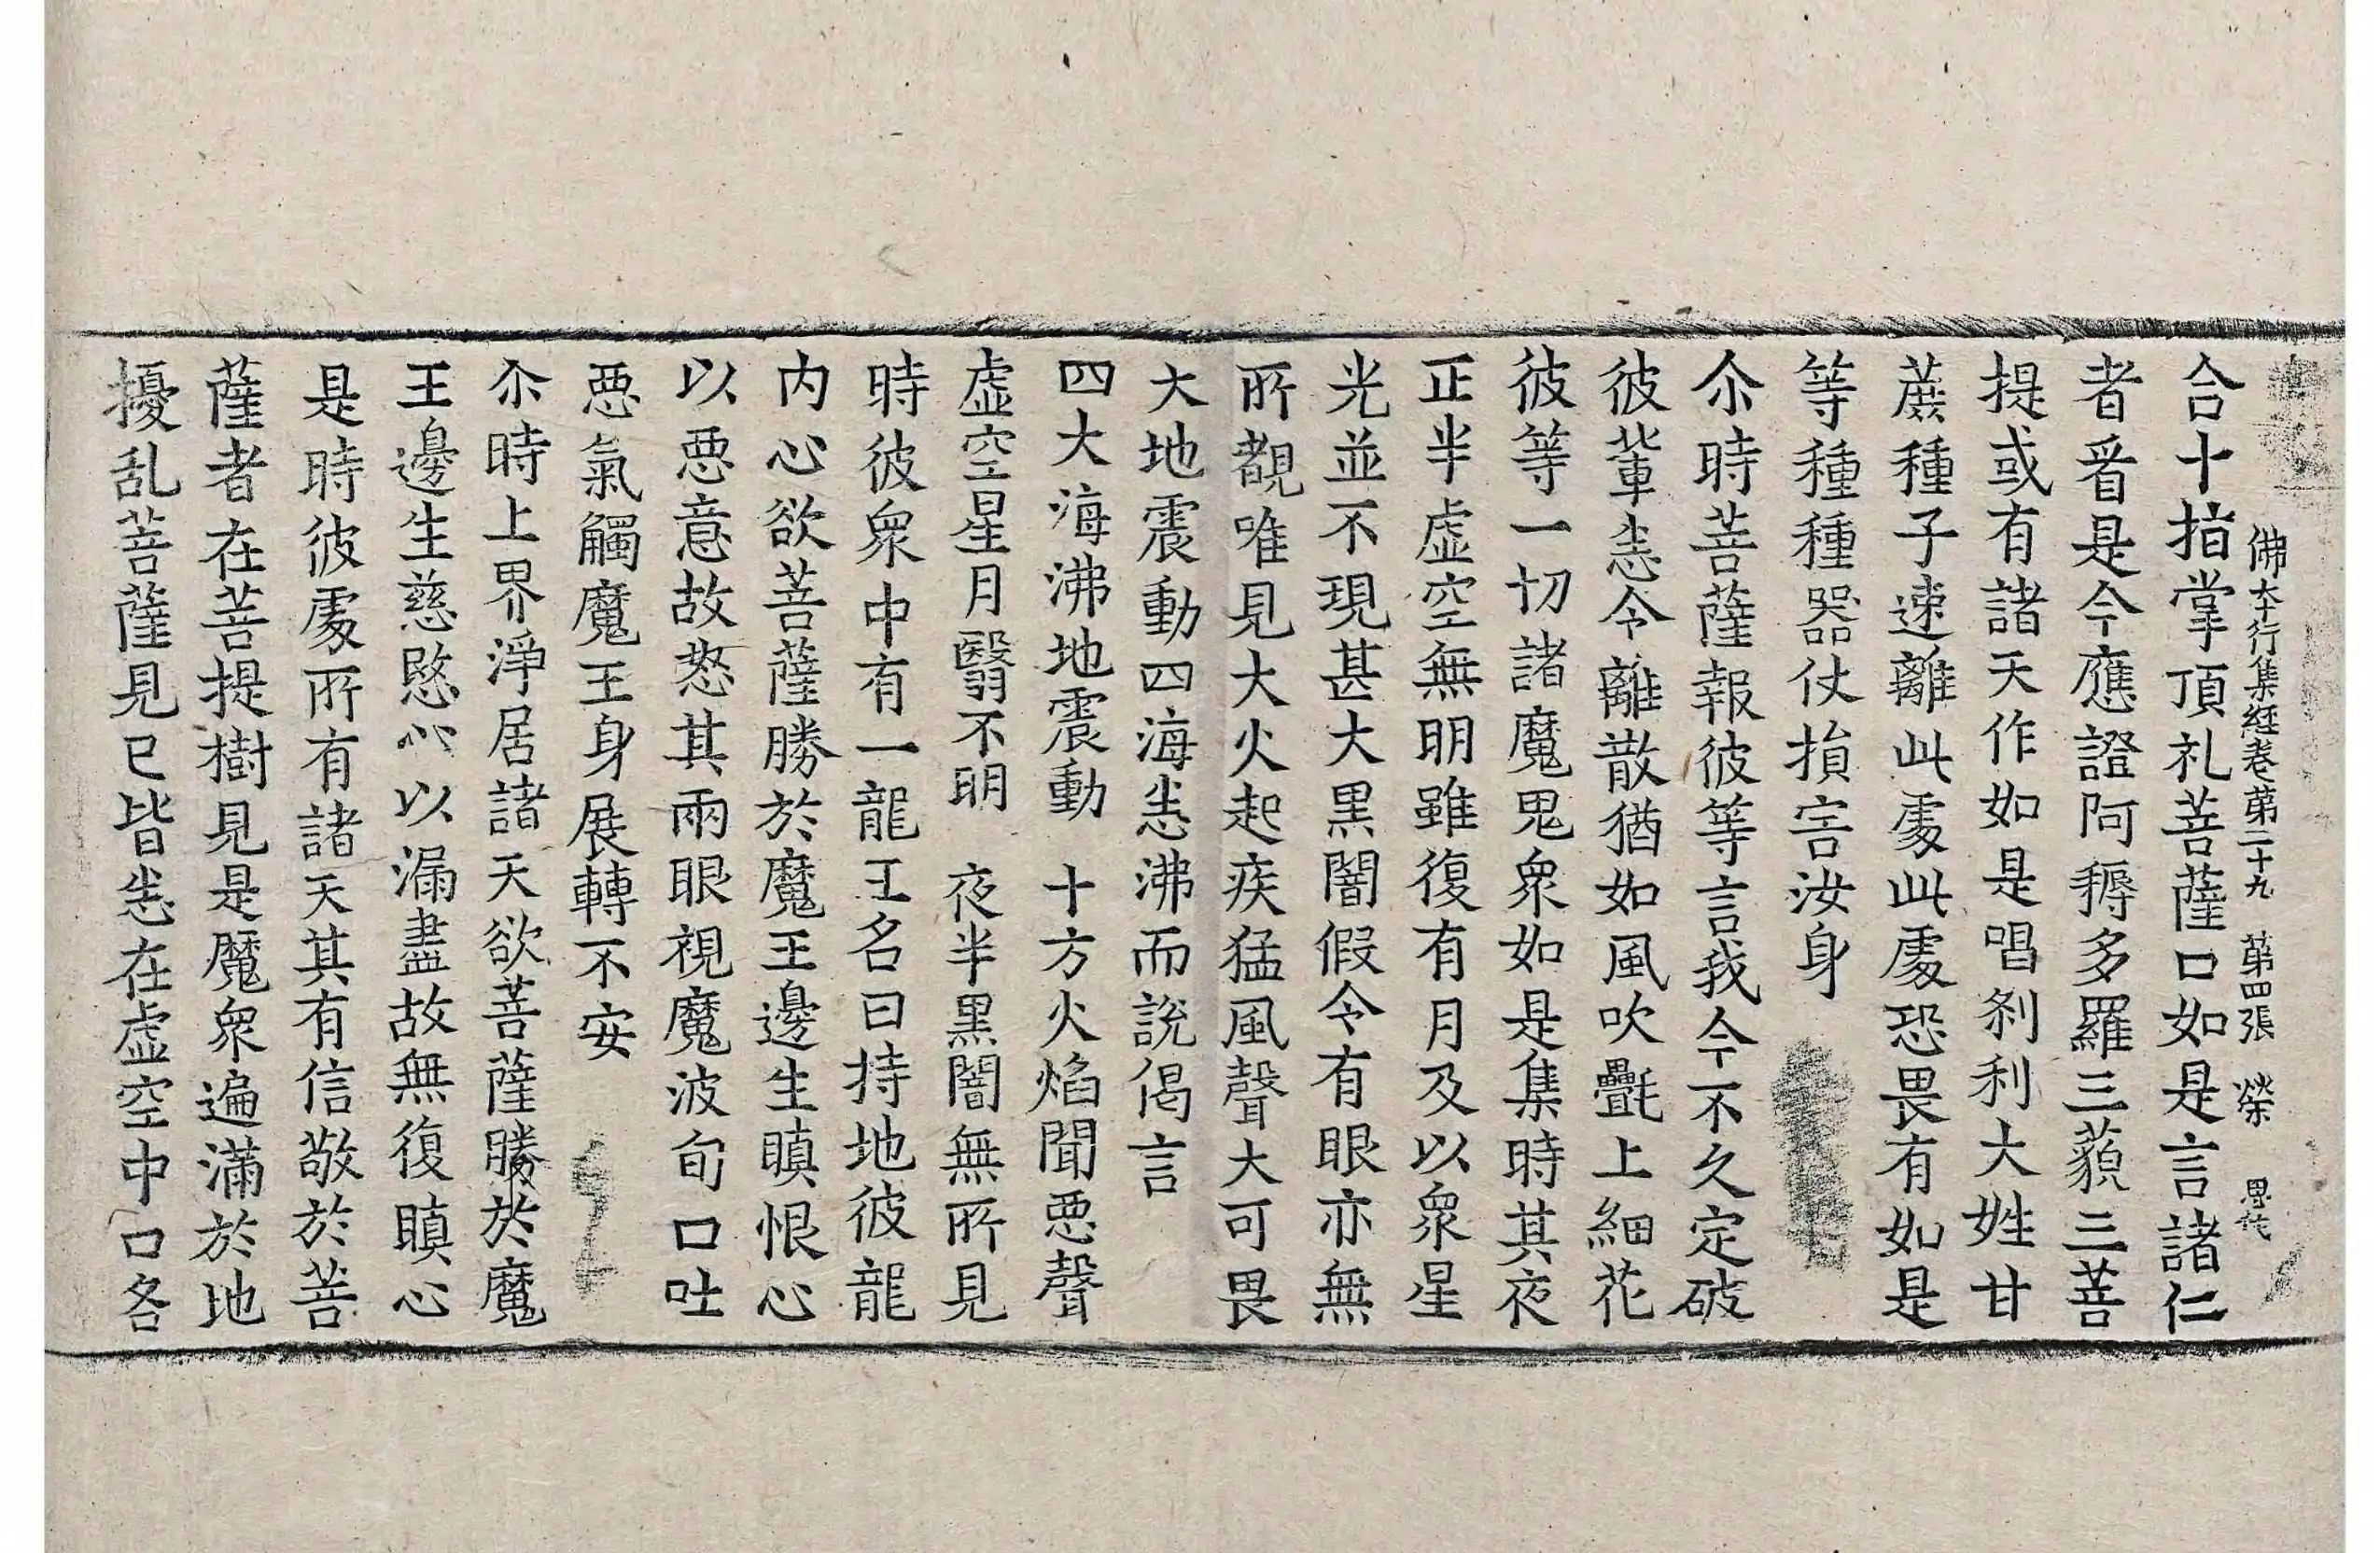 佛本行集經卷苐二十九　苐四張　榮
合十指掌頂礼菩薩口如是言諸仁
者㸔是今應證阿耨多羅三藐三菩
提或有諸天作如是唱刹利大姓甘
蔗種子速離此䖏此䖏恐畏有如是
等種種器仗損害汝身
尒時菩薩報彼等言我今不久定破
彼輩恚令離散猶如風吹氎上細花
彼等一切諸魔鬼衆如是集時其夜
正半虛空無明雖復有月及以衆星
光並不現甚大黑闇假令有眼亦無
所覩唯見大火起疾猛風聲大可畏
大地震動四海恚沸而說偈言
四大海沸地震動　十方火焰聞惡聲
虛空星月翳不明　夜半黑闇無所見
時彼衆中有一龍王名曰持地彼龍
内心欲菩薩勝於魔王邊生瞋恨心
以惡意故怒其兩眼視魔波旬口吐
惡氣觸魔王身展轉不安
尒時上界淨居諸天欲菩薩勝於魔
王邊生慈愍心以漏盡故無復瞋心
是時彼䖏所有諸天其有信敬於菩
薩者在菩提樹見是魔衆遍滿於地
擾乱菩薩見已皆恚在虛空中口各